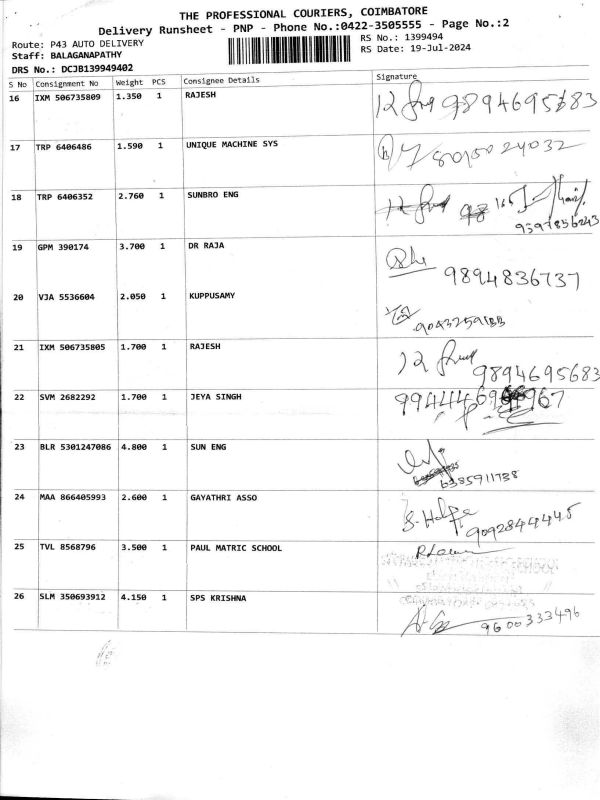 THE PROFESSIONAL COURIERS, COIMBATORE
Delivery Runsheet - PNP - Phone No.:0422-3505555 - Page No.:2
Route: P43 AUTO DELIVERY
RS No.: 1399494
Staff: BALAGANAPATHY
RS Date: 19-Jul-2024
DRS No.: DCJB139949402
S No Consignment No Weight PCS Consignee Details Signature
16 IXM 506735809 1.350 1 RAJESH
17 TRP 6406486 1.590 1 UNIQUE MACHINE SYS
18 TRP 6406352 2.760 1 SUNBRO ENG
9597856243
19 GPM 390174 3.700 1 DR RAJA
9894836737
20 VJA 5536604 2.050 1 KUPPUSAMY
21 IXM 506735805 1.700 1 RAJESH
9894695683
22 SVM 2682292 1.700 1 JEYA SINGH
23 BLR 5301247086 4.800 1 SUN ENG
6385911738
24 MAA 866405993 2.600 1 GAYATHRI ASSO
9092844445
25 TVL 8568796 3.500 1 PAUL MATRIC SCHOOL
26 SLM 350693912 4.150 1 SPS KRISHNA
9600333496